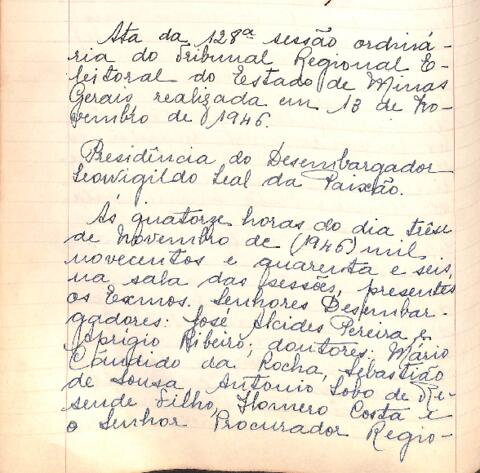 Ata da 128ª sessão ordiná-
ria do Tribunal Regional E-
leitoral do Estado de Minas
Gerais, realizada em 13 de No-
vembro de 1946.
Presidência do Desembargador
Leovigildo Leal da Paixão.
Ás quatorze horas do dia trêse
de Novembro de (1946) mil
novecentos e quarenta e seis,
na sala das sessões, presentes
os Exmos. Senhores Desembar-
gadores: José Alcides Pereira e
Aprígio Ribeiro; doutores: Mário
Cândido da Rocha, Sebastião
de Sousa, Antonio Lobo de Re-
sende Filho, Homero Costa e
o Senhor Procurador Regio-